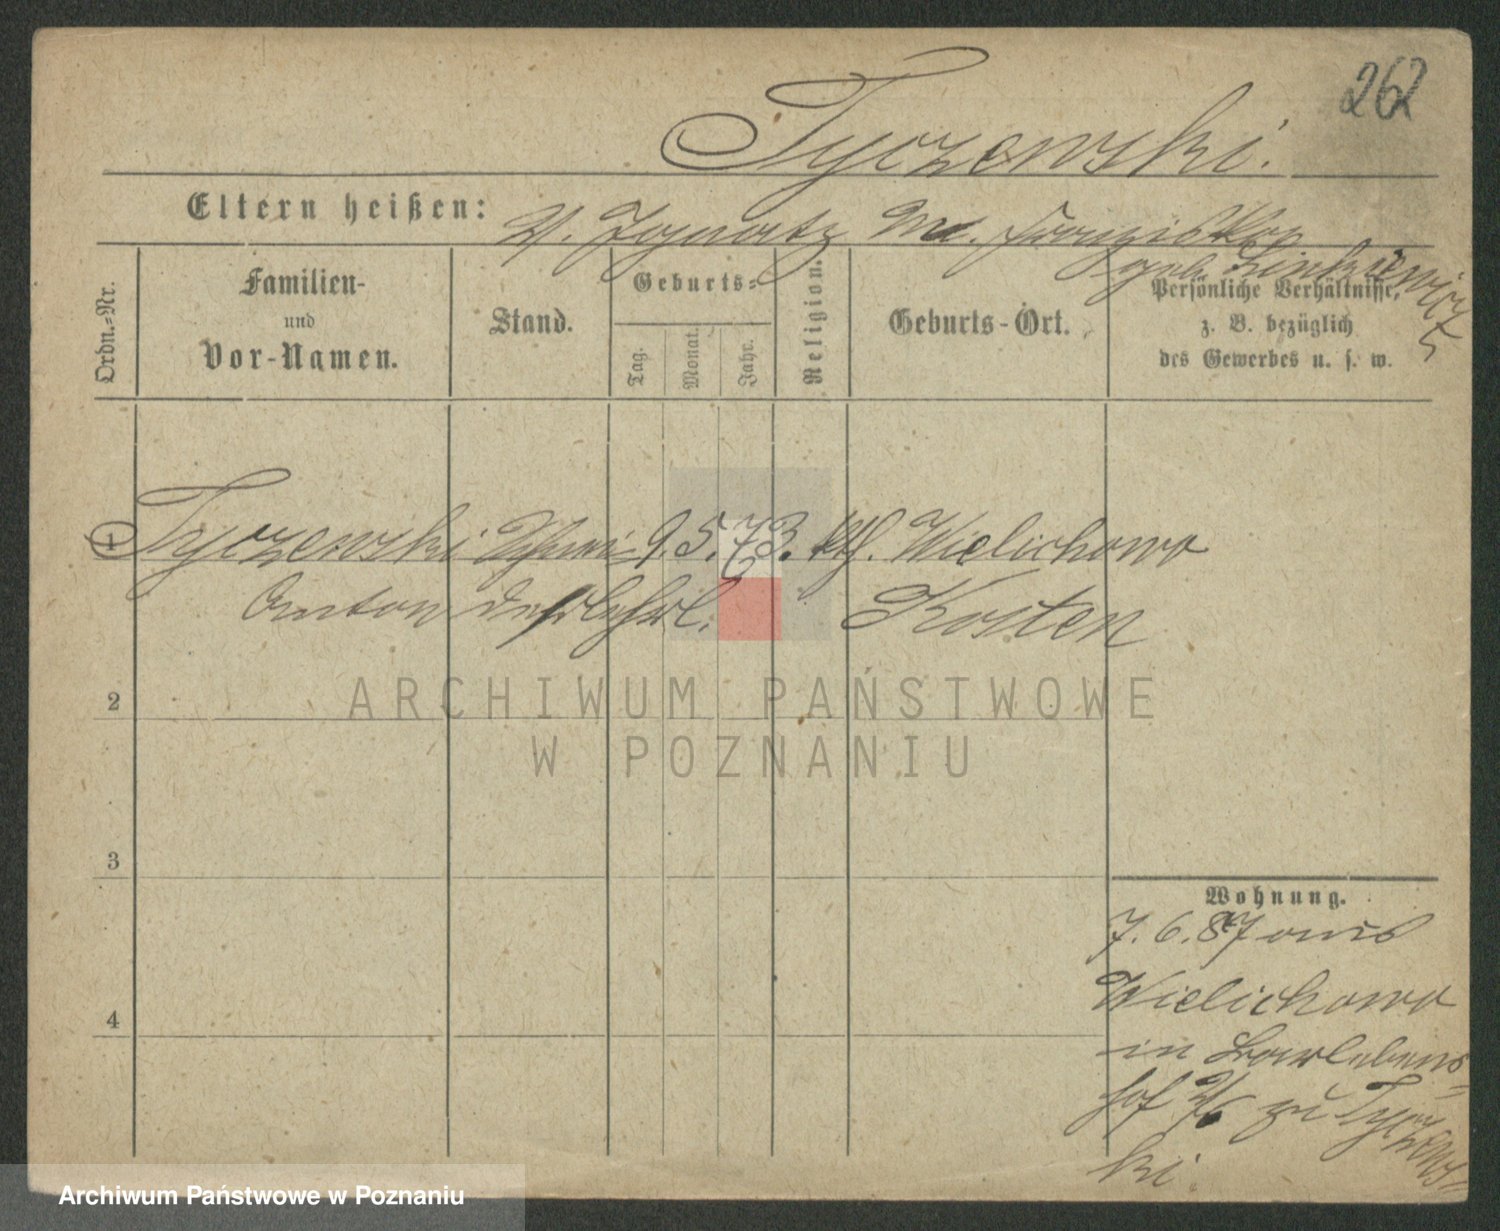 262
Tyczewski.
Eltern heißen: V. Ignatz M. Franziska
geb. Zinkiewicz
Ordn.-Nr.
Familien-
und
Vor-Namen.
Stand.
Geburts-
Tag.
Monat.
Jahr.
Religion.
Geburts-Ort.
Persönliche Verhältnisse,
z. B. bezüglich
des Gewerbes u. s. w.
1 Tyczewski 9. 5. 73. kth. Wielichowo
Anton Kosten
2
3
4
ARCHIWUM PAŃSTWOWE
W POZNANIU
Wohnung.
7. 6. 87 aus
Wielichowo
in
hof zu Tyczews-
ki.
Archiwum Państwowe w Poznaniu